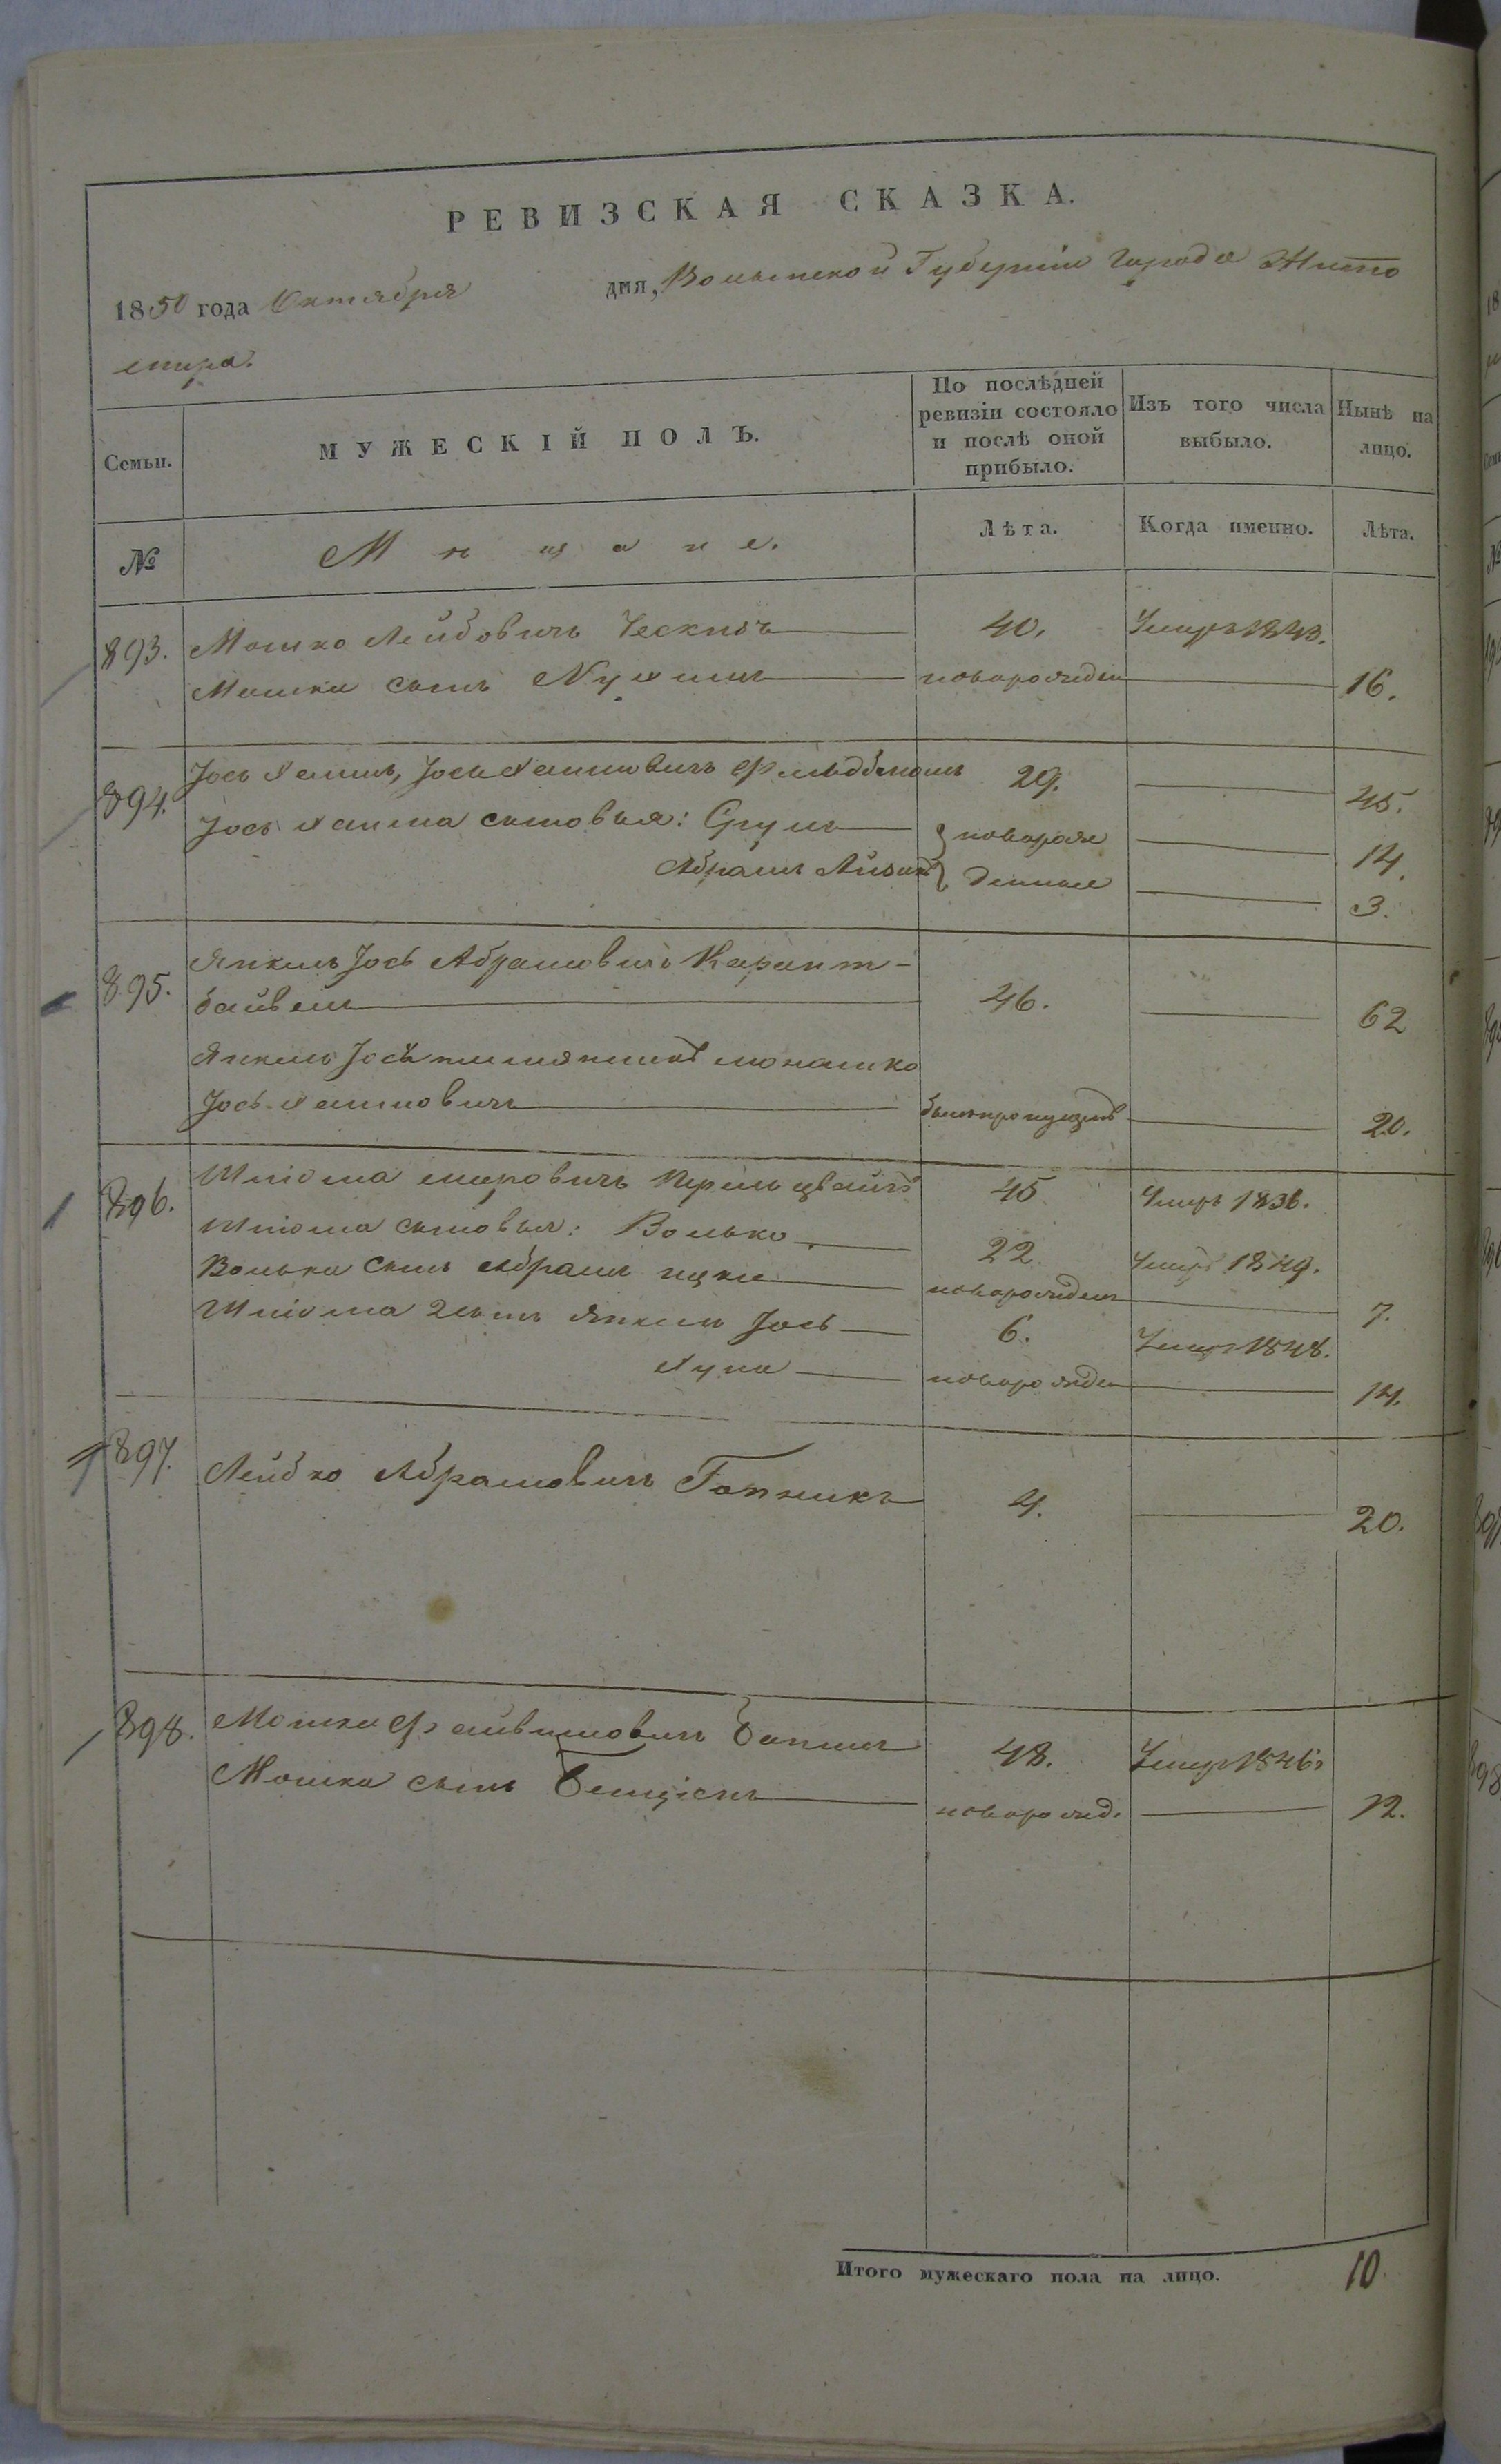 РЕВИЗСКАЯ СКАЗКА.
1850 года Октября дня, Волынской Губерніи города Жито
мира.
Семьи. МУЖЕСКІЙ ПОЛЪ. По послѣдней ревизіи состояло и послѣ оной прибыло. Изъ того числа выбыло. Нынѣ на лицо.
№ Мѣщане. Лѣта. Когда именно. Лѣта.
893. Мошко Лейбовичъ 40. Умеръ 1843.
Мошка сынъ Нухимъ новорожден 16.
894. Іось Хаимъ, Іось Хаимовичъ Фельдбаумъ 29. 45.
Іось Хаима сыновья: Сруль новорож 14.
Абрамъ Айзикъ денные 3.
895. Янкель Іось Абрамовичъ Карант-
байвель 46. 62
Янкель Іося племянникъ
Іось-Хаимовичъ былъ пропущенъ 20.
896. Шліома Меровичъ 45 Умеръ 1836.
Шліома сыновья: Волько 22 Умеръ 1849.
Волька сынъ Абрамъ Ицко новорожден 7.
Шліома 2 сынъ Янкель Іось 6. Умеръ 1848.
новорожден 14.
897. Лейбко Абрамовичъ 4. 20.
898. Мошко Файвишовичъ 48. Умеръ 1846
Мошка сынъ Бенціонъ новорожд. 12.
Итого мужескаго пола на лицо. 10.